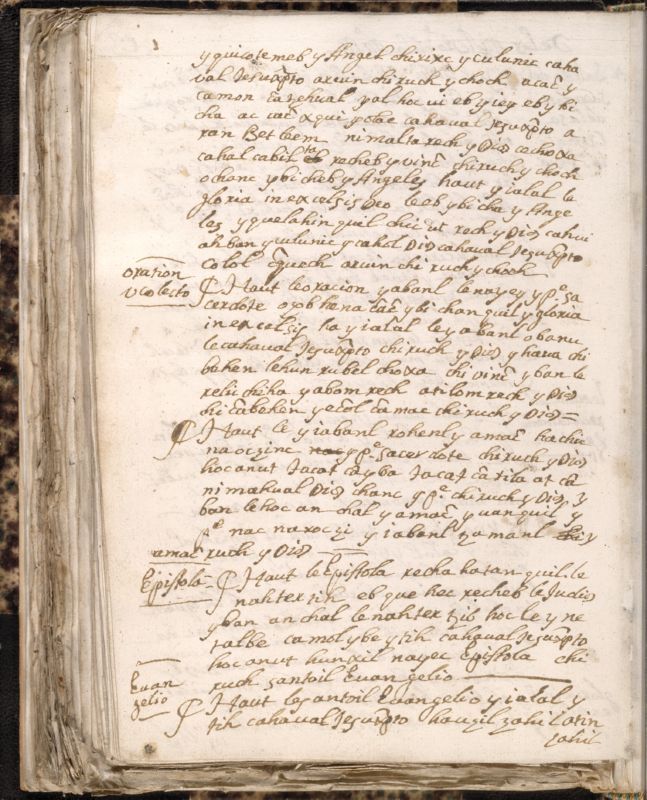 y quicotemeb y Angel chirixc y culunic caha
val Jesuxp̄to arvin chi ruch y choch acac̄ y
camon cazehual yal hoc vi eb y iey eb y bi
cha ac vac̄ xqui y obe cahaval Jesuxp̄to a
ran Betleem ni malta rech y Dios cechoxa
cahal cabil ta recheb y vinc̄ chi ruch y choch
ochanc y bicheb y Angeles haut y ialal le
gloria in excelsis Deo le eb y bicha y Ange
les y quelahin quil chic ut rech y Dios cahvi
ah ban y culunic y cahal Dios cahaval Jesuxp̄to
colol q̄ rech arvin chi ruch y chooh
oration
v colecto
Haut le oracion y abanl le nayey y p.e sa
cerdote oxob hena cāc̄ y bichan quil y gloria
in excelsis ha y ialal le y abanl obanu
le cahaval Jesuxp̄to chi ruch y Dios y hava chi
behen lehun rubel choxa chi vinc̄ y ban le
relic chiha y abom rech atilom rech y Dios
chi cābehen y ec̄ol cāmac chi ruch y Dios =
Haut le y iabanl rohenly amac̄ hachic
naoczinc y p.e sacerdote chi ruch y Dios
hoc anut Jacaḉ cayba Jacaḉ cātila at cā
nimahual Dios chanc y p.e chi ruch y Dios y
ban le hoc an chal y amac̄ y uanquil y
p.e nac naroczi y iabanl zamanl
amac̄ ruch y Dios
Epistola
Haut le Epistola recha hatan quil le
nahterzih eb que hec recheb le Judios
y ban anchal le nahter tzib hoc le y ne
talbe camol y be y tih cahaval Jesuxp̄to
hoc anut hunxil nayec Epistola chi
ruch santoil Euangelio
Euan
gelio
Haut le santoil Euangelio y ialal y
tih cahaval Jesuxp̄to hauzil zahil atin
zahil